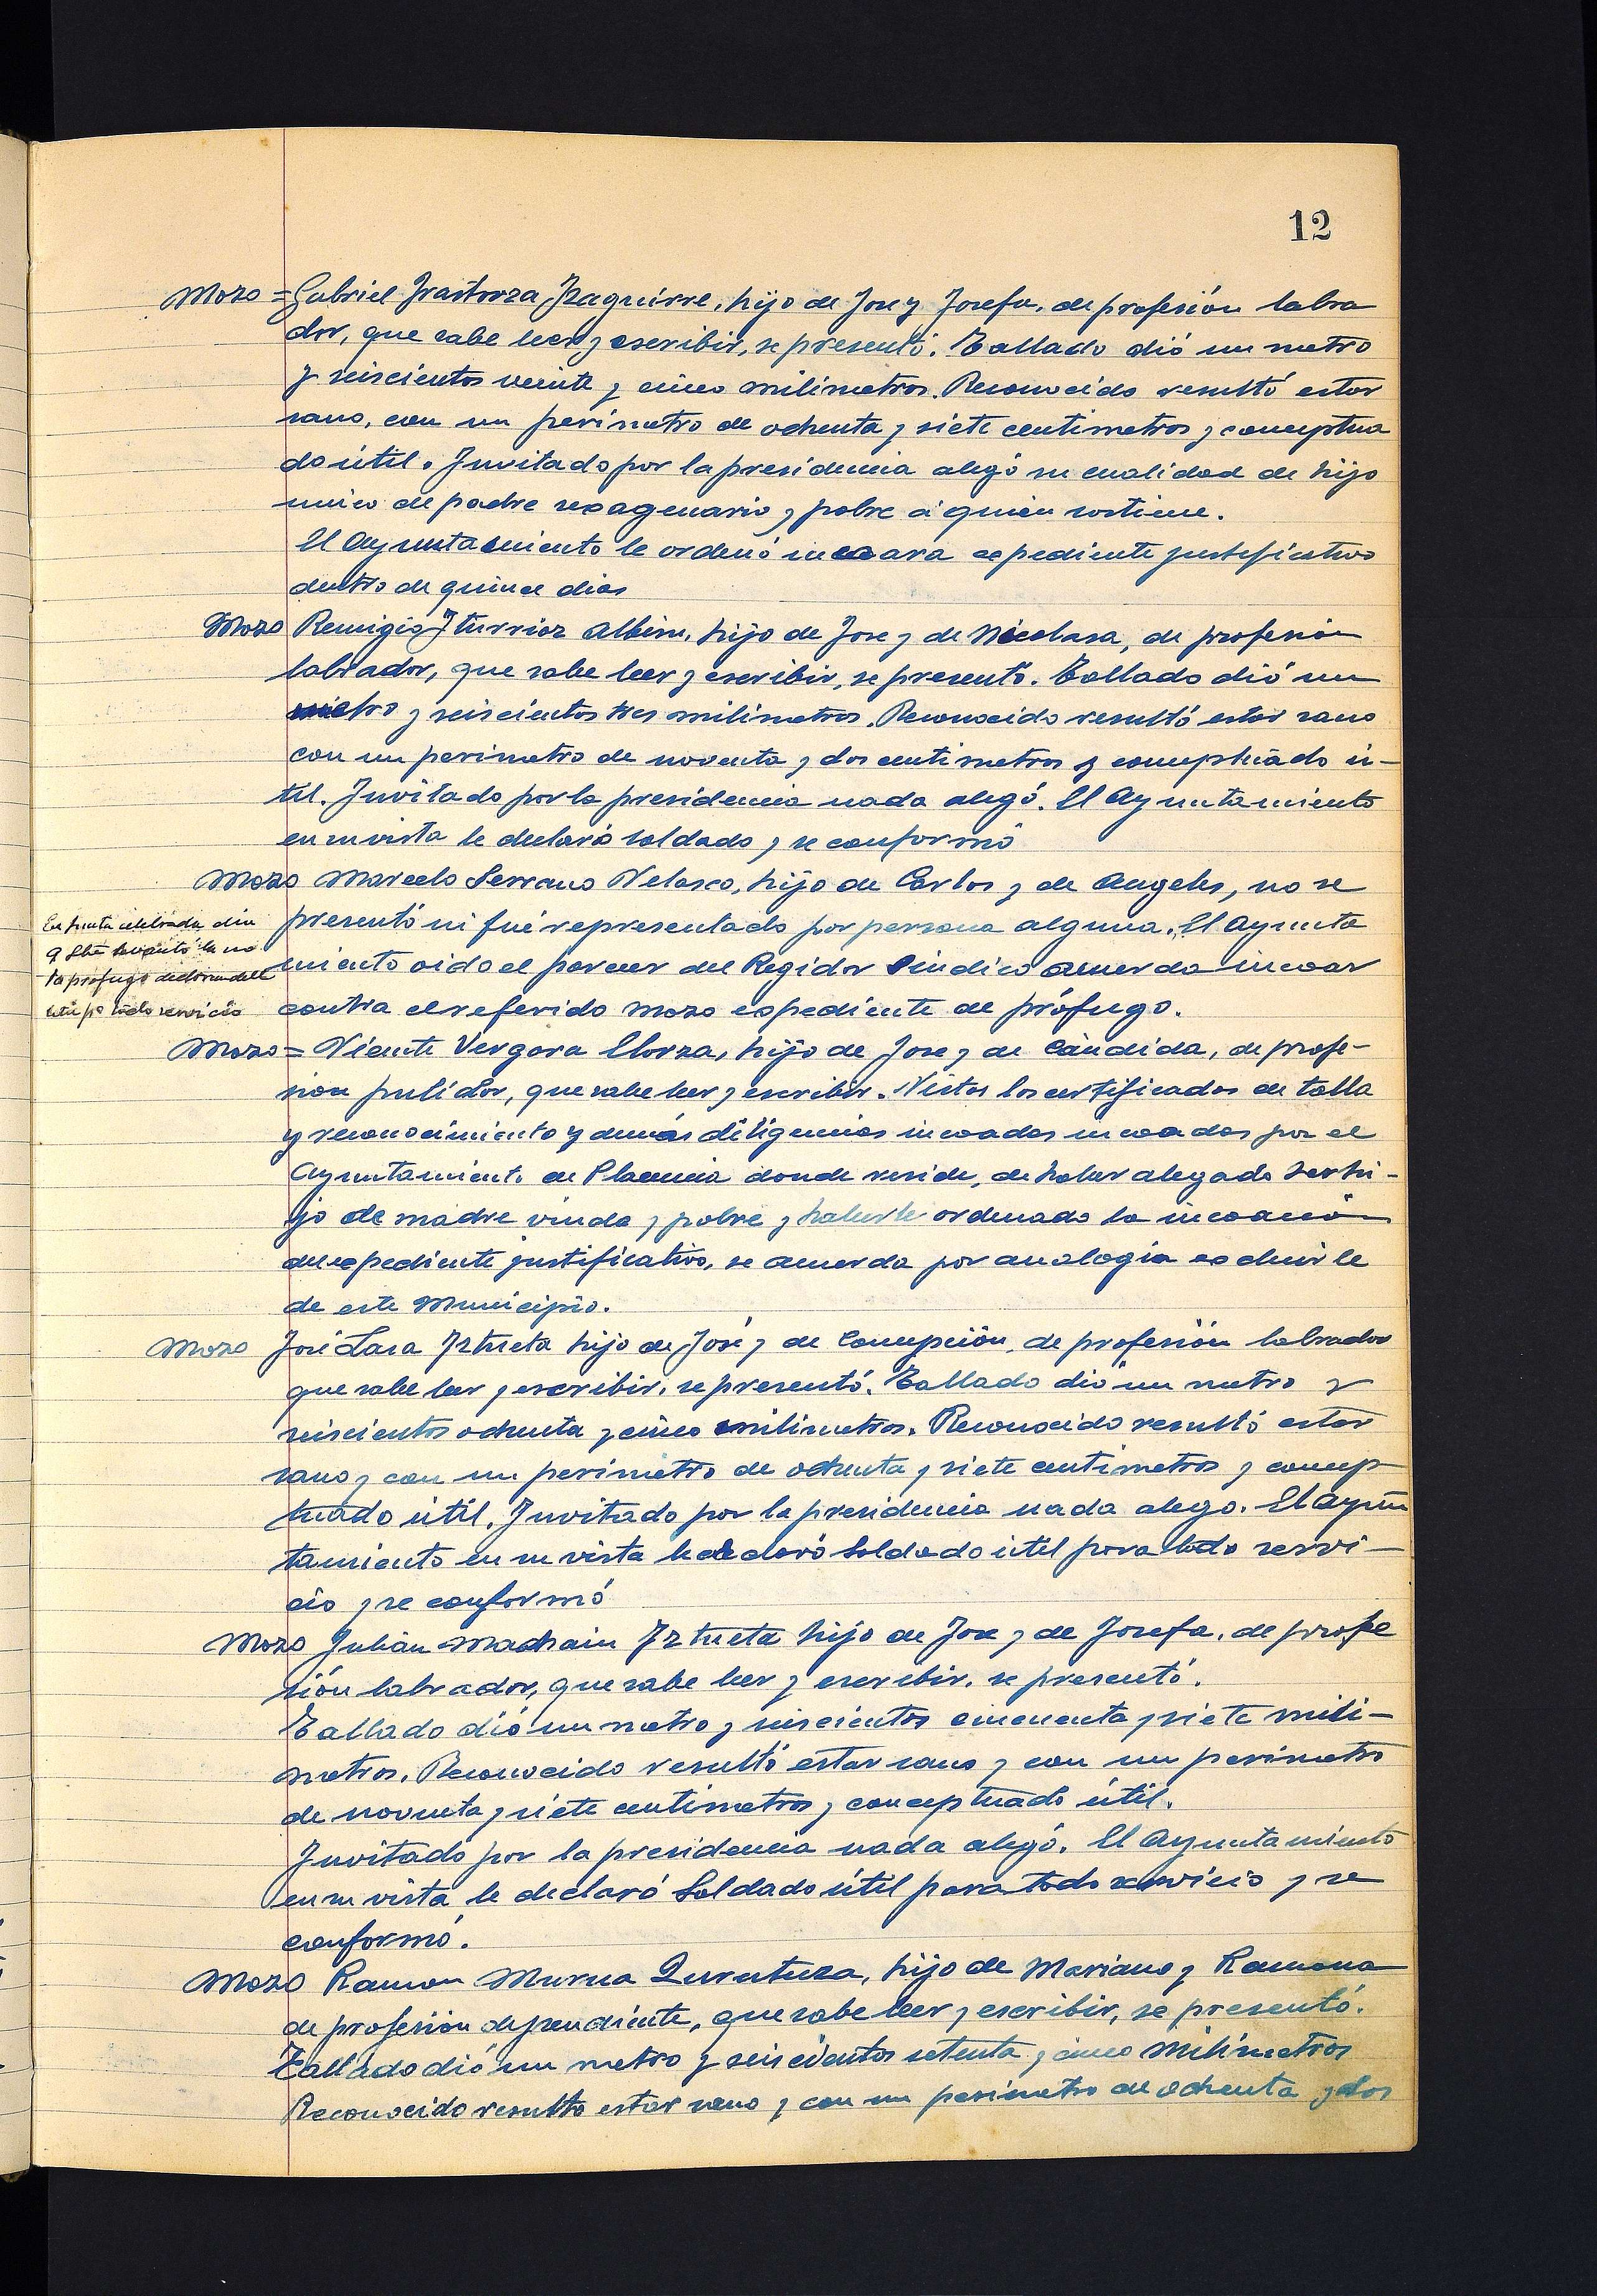 12
Mozo = Gabriel Irastorza Izaguirre, hijo de Jose y Josefa, de profesión labra
dor, que sabe leer y escribir, se presentó. Tallado dió un metro
y seiscientos veinte y cinco milimetros. Reconocido resultó estar
sano, con un perimetro de ochenta y siete centimetros y conceptua
do útil. Invitado por la presidencia alegó su cualidad de hijo
unico de padre sexagenario y pobre á quien sostiene.
El Ayuntamiento le ordenó incoara expediente justificativo
dentro de quince dias
Mozo Remigio Iturrioz Albisu, hijo de Jose y de Nicolasa, de profesión
labrador, que sabe leer y escribir, se presentó. Tallado dió un
metro y seiscientos tres milimetros. Reconocido resultó estar sano
con un perimetro de noventa y dos centimetros y conceptuado ú-
til. Invitado por la presidencia nada alegó. El Ayuntamiento
en su vista le declaró soldado y se conformó
Mozo Marcelo Serrano Velasco, hijo de Carlos y de Angeles, no se
presentó ni fué representado por persona alguna. El Ayunta
miento oido el parecer del Regidor Sindico acuerda incoar
contra el referido mozo expediente de prófugo.
En junta celebrada dia
9 se levantó la no
ta prófugo
util pa todo servicio
Mozo = Vicente Vergara Elorza, hijo de Jose y de Cándida, de profe-
sion pulidor, que sabe leer y escribir. Vistos los certificados de talla
y reconocimiento y demás diligencias incoadas incoadas por el
Ayuntamiento de Placencia donde reside, de haber alegado ser hi-
jo de madre viuda y pobre y haberle ordenado la incoación
del expediente justificativo, se acuerda por analogia excluirle
de este Municipio.
Mozo José Lasa Iztueta hijo de José y de Concepción, de profesión labrador
que sabe leer y escribir, se presentó. Tallado dió un metro y
seiscientos ochenta y cinco milimetros. Reconocido resultó estar
sano y con un perimetro de ochenta y siete centimetros y concep
tuado útil. Invitado por la presidencia nada alego. El Ayun
tamiento en su vista le declaró Soldado útil para todo servi-
cio y se conformó
Mozo Julián Machain Iztueta hijo de Jose y de Josefa, de profe
sión labrador, que sabe leer y escribir, se presentó.
Tallado dió un metro y seiscientos cincuenta y siete mili-
metros. Reconocido resultó estar sano y con un perimetro
de noventa y siete centimetros y conceptuado útil.
Invitado por la presidencia nada alegó. El Ayuntamiento
en su vista le declaró Soldado útil para todo servicio y se
conformó.
Mozo Ramon Murua, hijo de Mariano y Ramona
de profesión dependiente, que sabe leer y escribir, se presentó.
Tallado dió un metro y seiscientos setenta y cinco milimetros
Reconocido resultó estar sano y con un perimetro de ochenta y dos